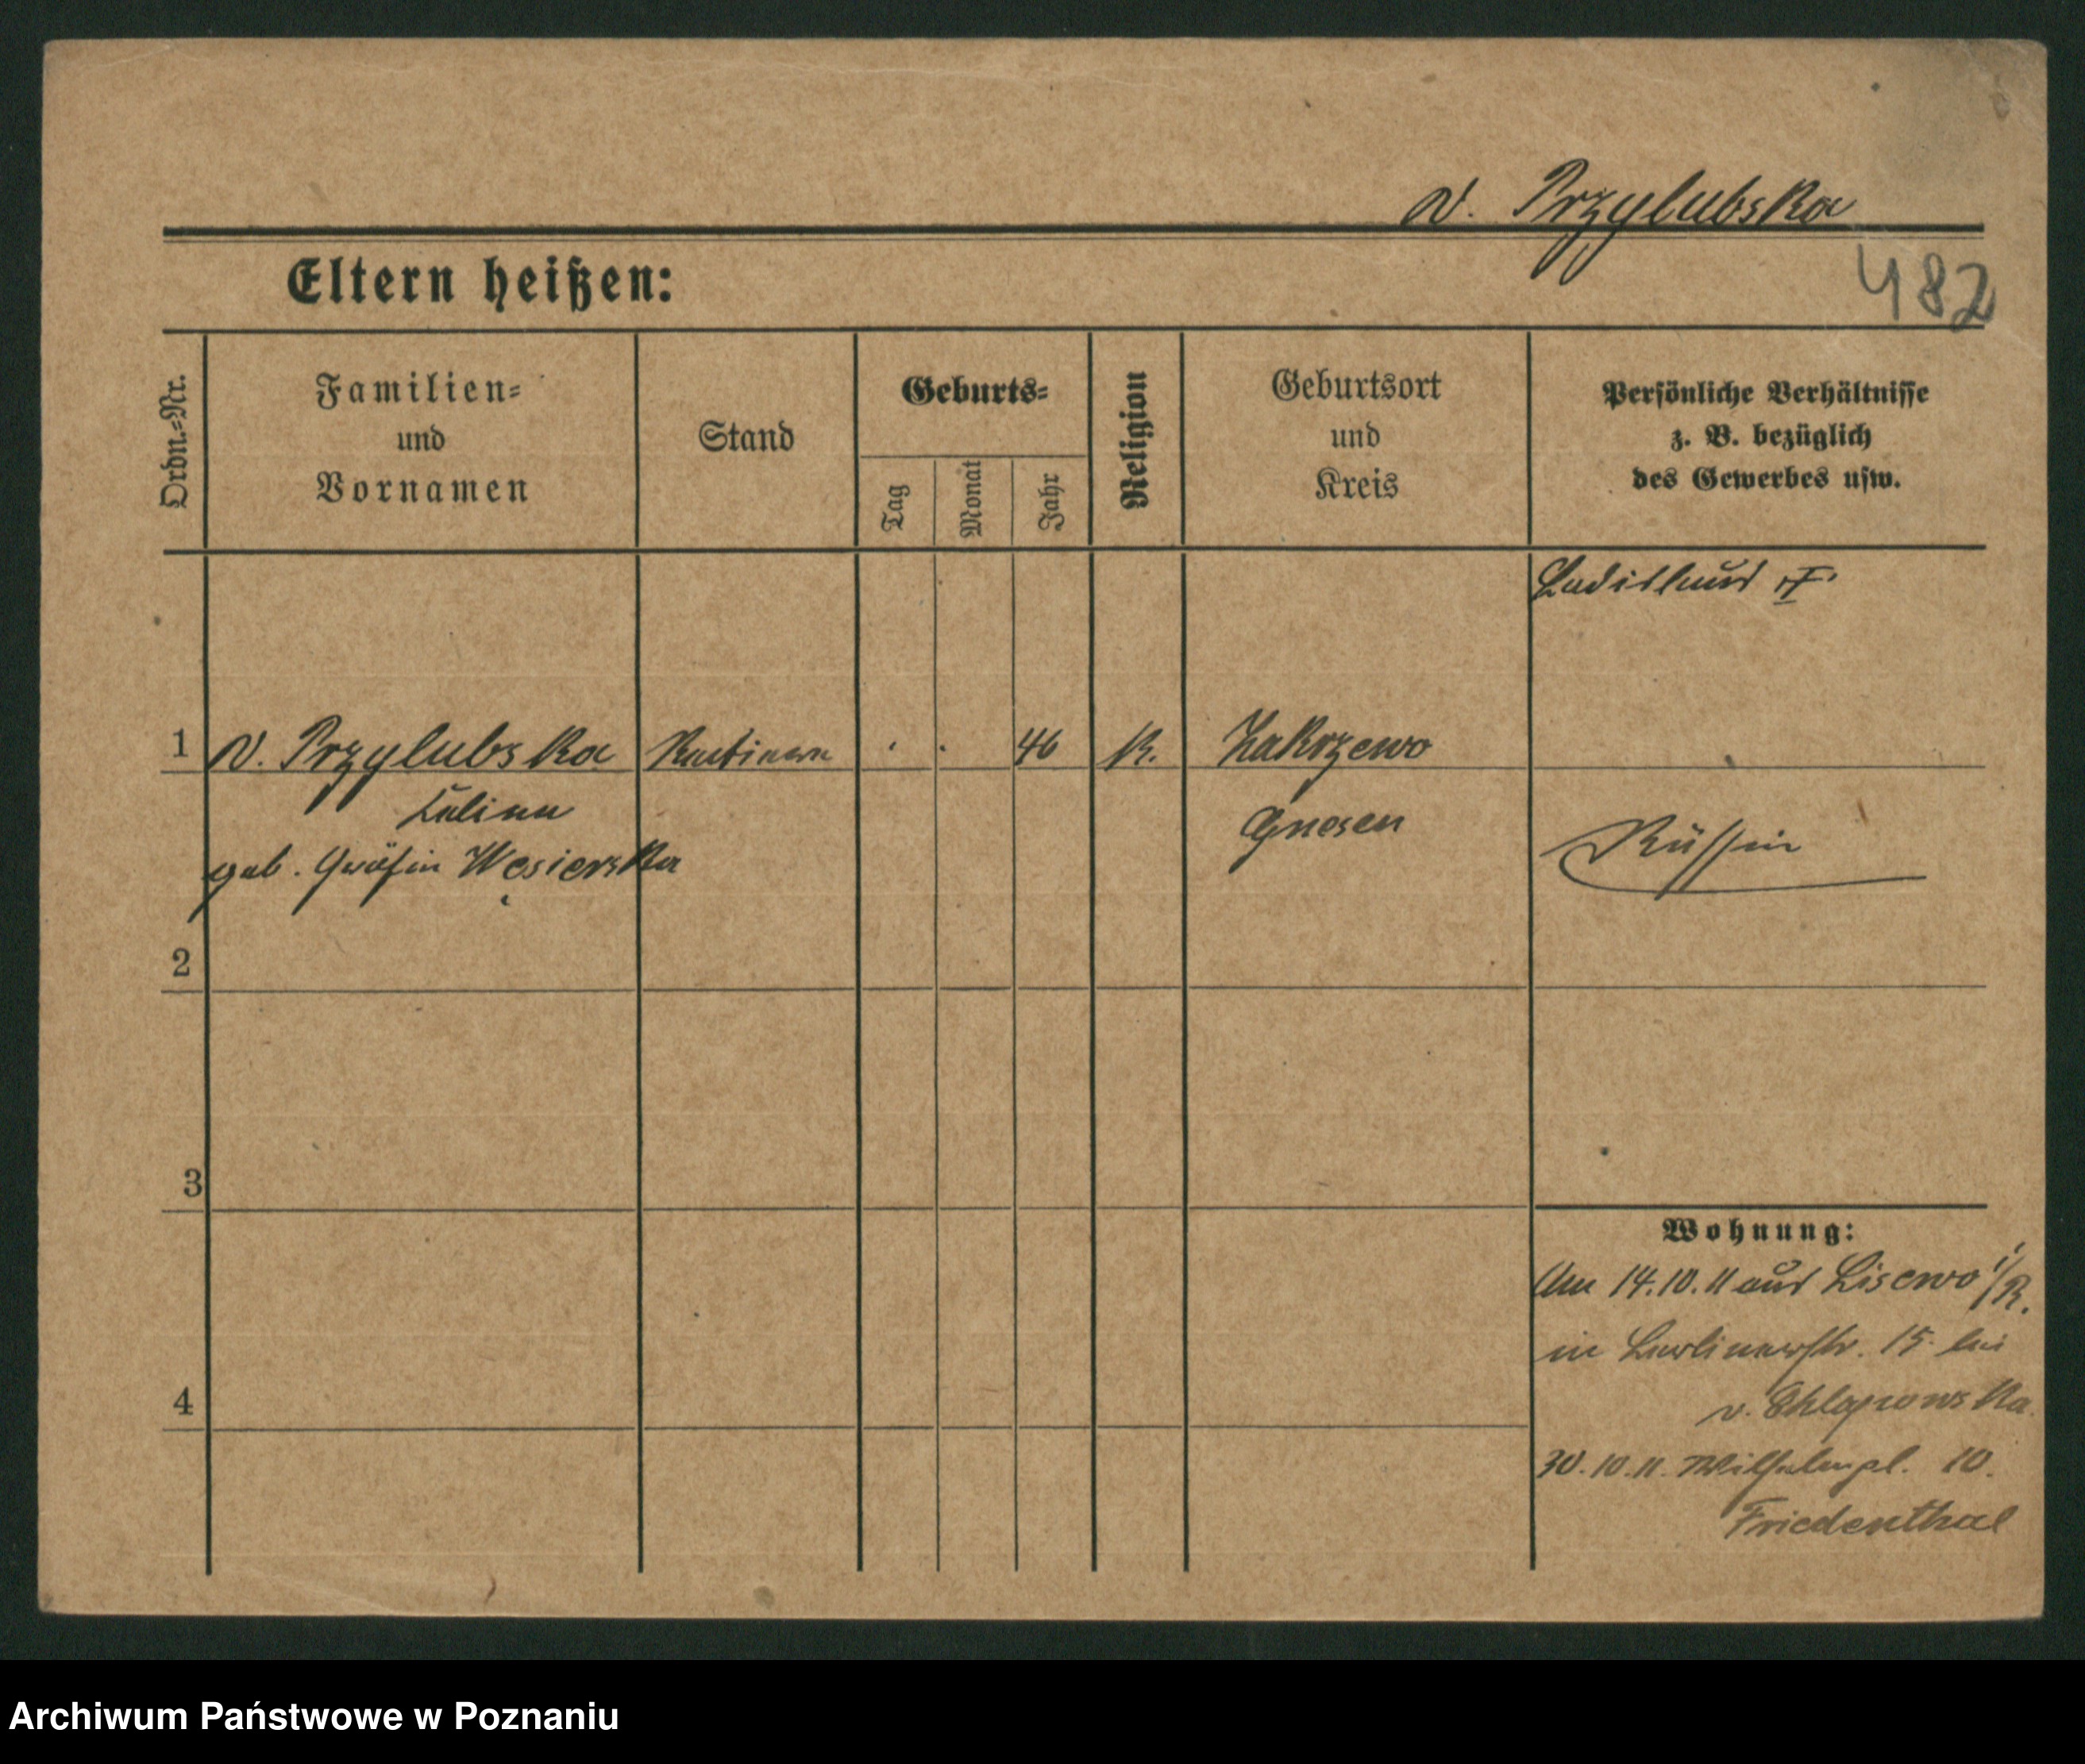 v. Przylubska
Eltern heißen:
482
Ordn.-Nr.
Familien-
und
Vornamen
Stand
Geburts-
Tag
Monat
Jahr
Religion
Geburtsort
und
Kreis
Persönliche Verhältnisse
z. B. bezüglich
des Gewerbes usw.
Ladislaus
1 v. Przylubska Rentiere 46 K. Zakrzewo
geb. Gräfin Węsierska
Gnesen
Russin
2
3
4
Wohnung:
Am 14.10.11 aus Lisewo i/R.
in Berlinerstr. 15 bei
v. Chlapowska
30.10.11. Wilhelmpl. 10.
Friedenthal
Archiwum Państwowe w Poznaniu